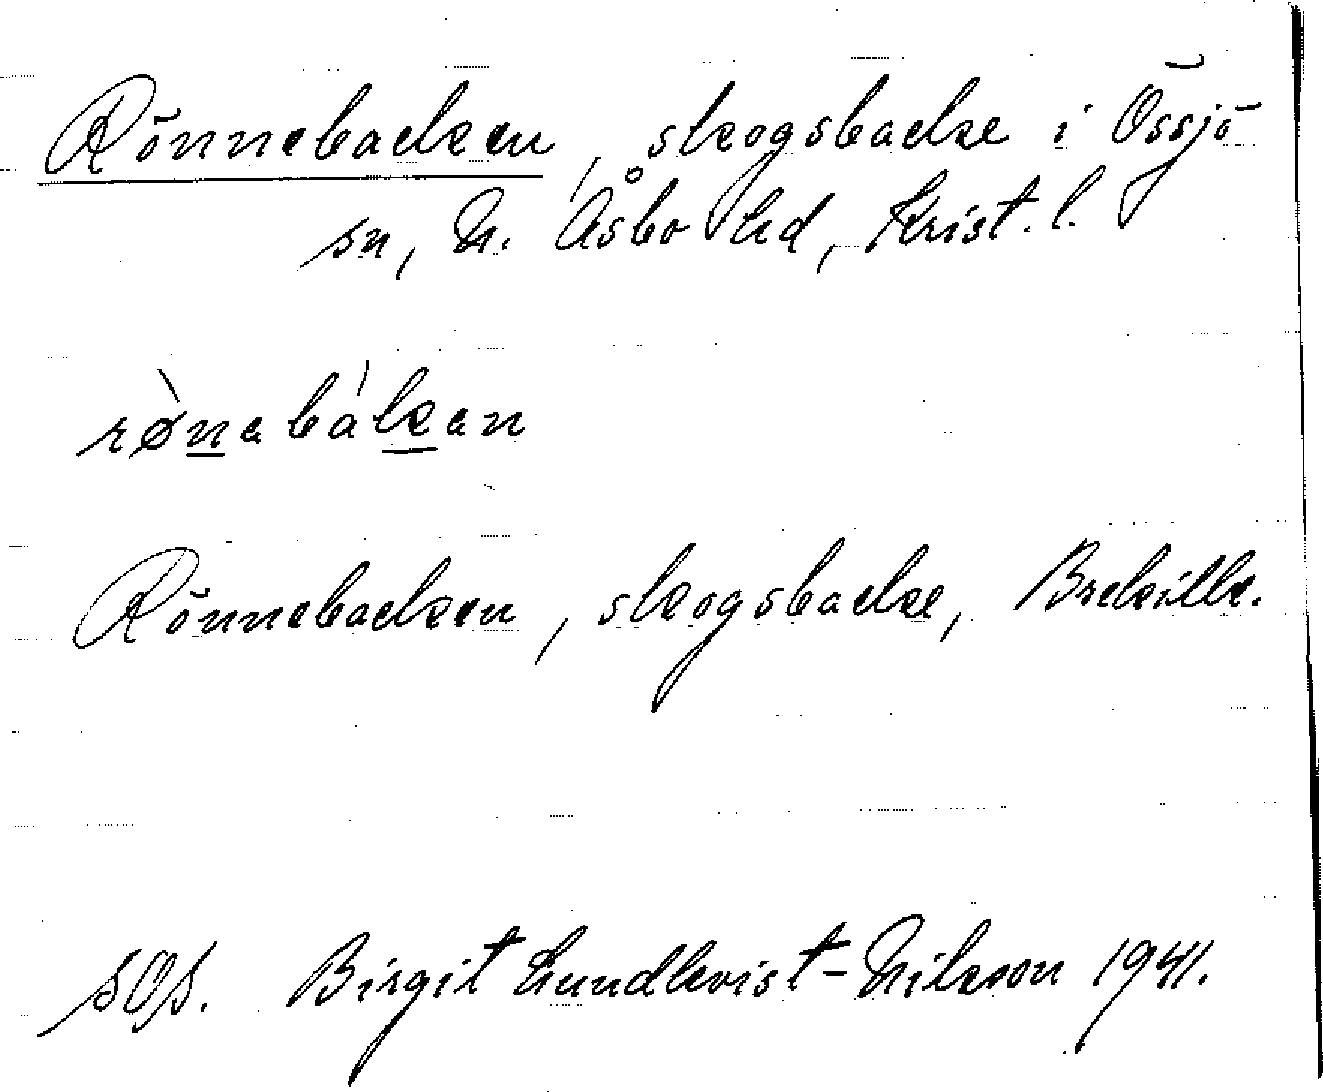 Rönnebacken, skogsbacke i Össjö
sn, N. Åsbo hd, Krist. l.
rø̀nabákan
Rönnebacken, skogsbacke,
SOS. Birgit Lundkvist-Nilsson 1941.